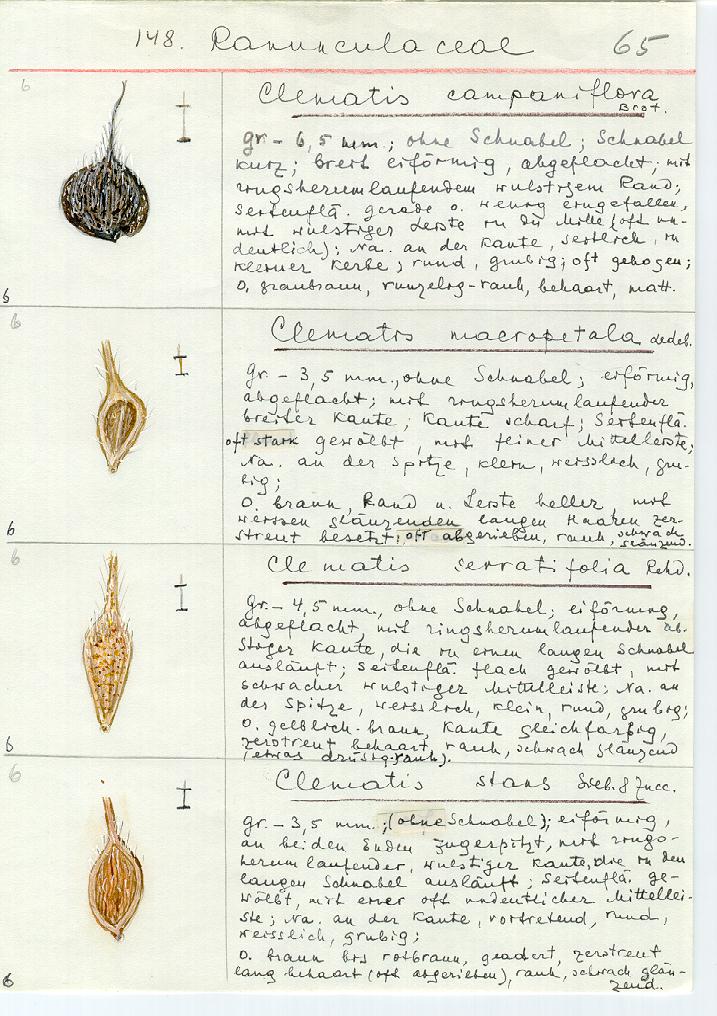 148. Ranunculaceae 65
6
Clematis campaniflora
Brot.
gr. - 6,5 mm.; ohne Schnabel; Schnabel
kurz; breit eiförmig, abgeflacht; mit
ringsherumlaufendem wulstigem Rand;
Seitenflä. gerade o. wenig eingefallen,
mit wulstiger Leiste in der Mitte (oft un-
deutlich); Na. an der Kante, seitlich, in
kleiner Kerbe; rund, grubig; oft gebogen;
O. graubraun, runzelig-rauh, behaart, matt.
6
6
Clematis macropetala Ledeb.
gr. - 3,5 mm., ohne Schnabel; eiförmig,
abgeflacht; mit ringsherumlaufender
breiter Kante; Kante scharf; Seitenflä.
oft stark gewölbt, mit feiner Mittelleiste;
Na. an der Spitze, klein, weisslich, gru-
big;
O. braun, Rand u. Leiste heller, mit
weissen glänzenden langen Haaren zer-
streut besetzt; oft abgerieben, rauh, schwach
glänzend.
6
6
Clematis serratifolia Rehd.
gr. - 4,5 mm., ohne Schnabel; eiförmig,
abgeflacht, mit ringsherumlaufender
Kante, die in einen langen Schnabel
ausläuft; Seitenflä. flach gewölbt, mit
schwacher wulstiger Mittelleiste; Na. an
der Spitze, weisslich, klein, rund, grubig;
O. gelblich-braun, Kante gleichfarbig,
zerstreut behaart, rauh, schwach glänzend
(etwas drüsig-rauh).
6
6
Clematis stans Sieb. & Zucc.
gr. - 3,5 mm.; (ohne Schnabel); eiförmig,
an beiden Enden zugespitzt, mit rings-
herumlaufender, wulstiger Kante, die in den
langen Schnabel ausläuft; Seitenflä. ge-
wölbt, mit einer oft undeutlicher Mittellei-
ste; Na. an der Kante, vortretend, rund,
weisslich, grubig;
O. braun bis rotbraun, geadert, zerstreut
lang behaart (oft abgerieben), rauh, schwach glän-
zend.
6